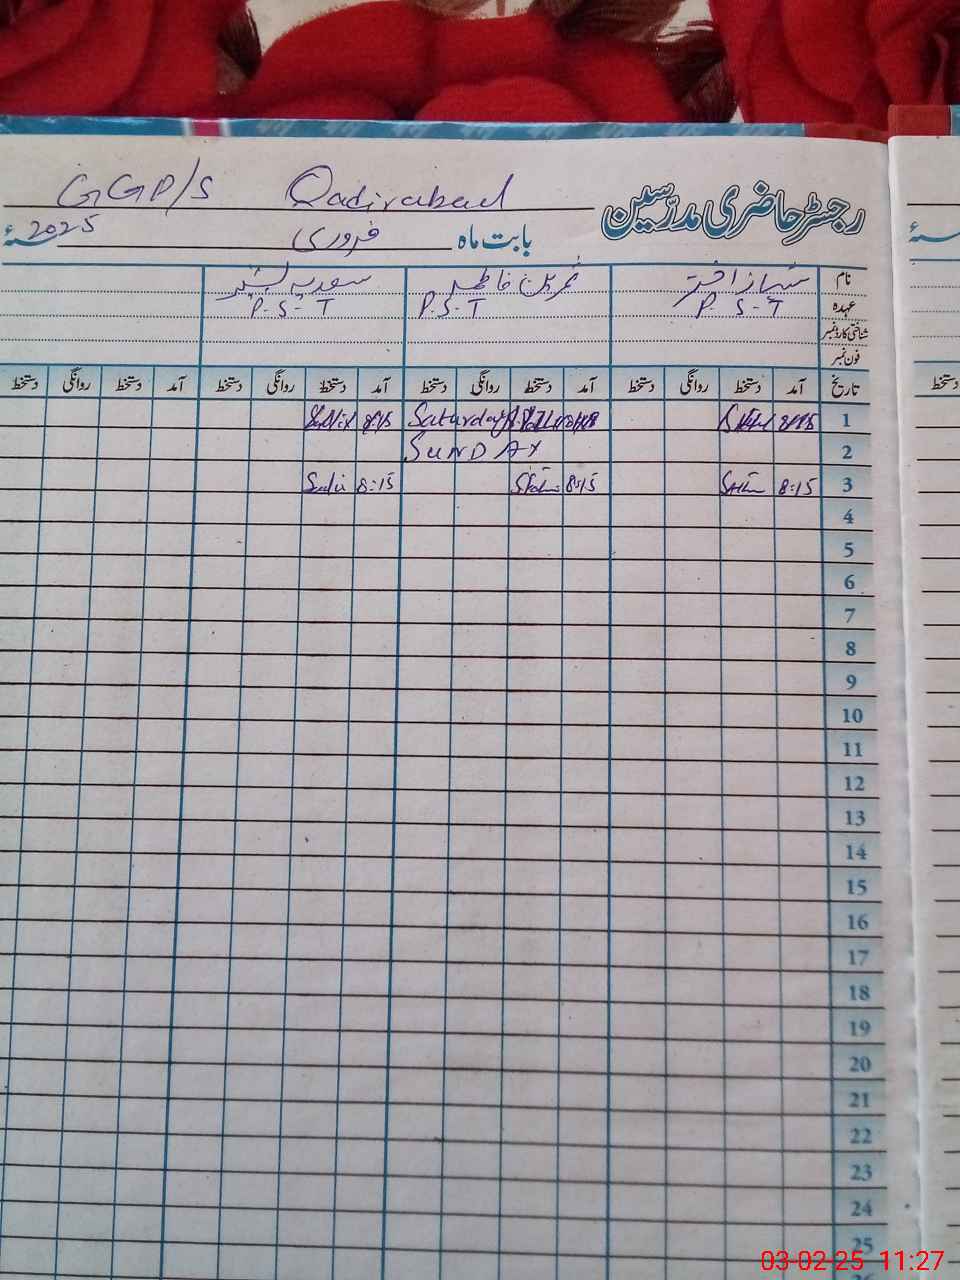 GGP/S Qadirabad
رجسٹر حاضری مدرسین
بابت ماہ فروری 2025
نام شہناز اختر ثمرین فاطمہ سعدیہ بشیر
عہدہ P.S.T P.S.T P.S-T
شناختی کارڈ نمبر
فون نمبر
تاریخ آمد دستخط روانگی دستخط آمد دستخط روانگی دستخط آمد دستخط روانگی دستخط آمد دستخط روانگی دستخط
دستخط
1 Saturday
2 SUNDAY
3 8:15 8:15 8:15
4
5
6
7
8
9
10
11
12
13
14
15
16
17
18
19
20
21
22
23
24
25
03-02-25 11:27